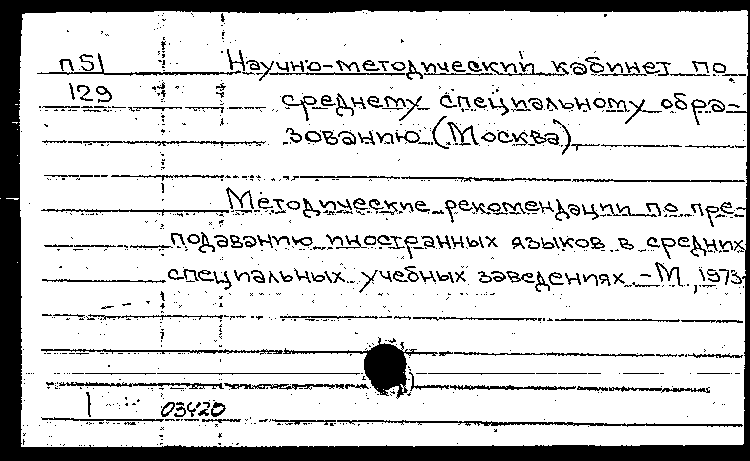 п51 Научно-методический кабинет по
129 среднему специальному обра-
зованию (Москва),
Методические рекомендации по пре-
подаванию иностранных языков в средних
специальных учебных заведениях.-М,1973-
1 03420